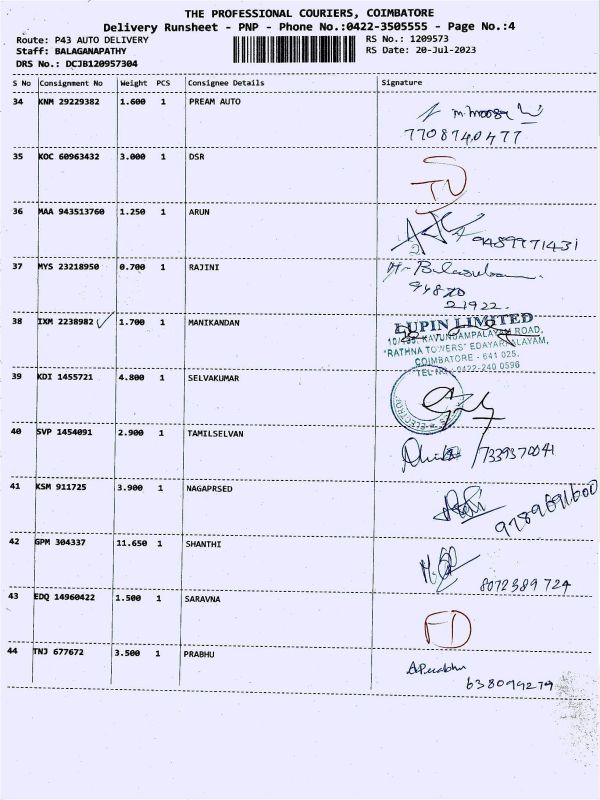 THE PROFESSIONAL COURIERS, COIMBATORE
Delivery Runsheet - PNP - Phone No.:0422-3505555 - Page No.:4
Route: P43 AUTO DELIVERY RS No.: 1209573
Staff: BALAGANAPATHY RS Date: 20-Jul-2023
DRS No.: DCJB120957304
S No Consignment No Weight PCS Consignee Details Signature
34 KNM 29229382 1.600 1 PREAM AUTO
7708740477
35 KOC 60963432 3.000 1 DSR
36 MAA 943513760 1.250 1 ARUN
9489771431
37 MYS 23218950 0.700 1 RAJINI
94870
21922
38 IXM 2238982 1.700 1 MANIKANDAN
LUPIN LIMITED
KAVUNDAMPALAYAM ROAD,
"RATHNA TOWERS" EDAYARPALAYAM,
COIMBATORE - 641 025.
TEL NO: 0422-240 0596
39 KDI 1455721 4.800 1 SELVAKUMAR
40 SVP 1454091 2.900 1 TAMILSELVAN
7339370041
41 KSM 911725 3.900 1 NAGAPRSED
9789691600
42 GPM 304337 11.650 1 SHANTHI
8072389724
43 EDQ 14960422 1.500 1 SARAVNA
FD
44 TNJ 677672 3.500 1 PRABHU
A.Prabhu
638099279